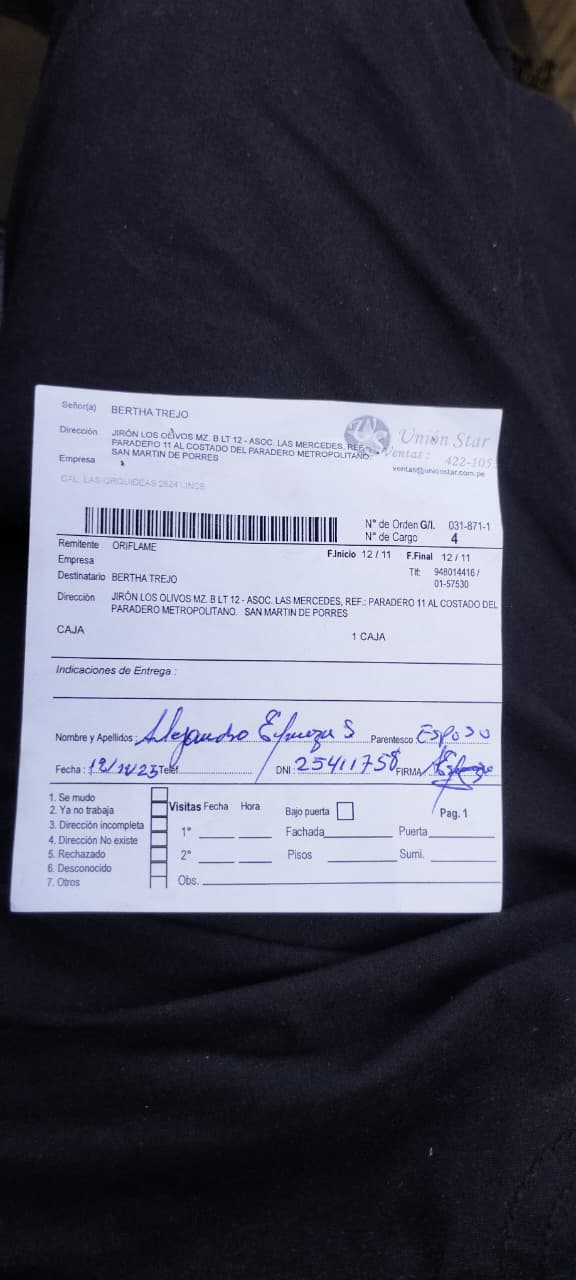 Señor(a) BERTHA TREJO
Unión Star
Dirección JIRÓN LOS OLIVOS MZ. B LT 12 - ASOC. LAS MERCEDES, REF.:
PARADERO 11 AL COSTADO DEL PARADERO METROPOLITANO.
SAN MARTIN DE PORRES
Ventas : 422-105
ventas@unionstar.com.pe
Empresa
CAL. LAS ORQUIDEAS 2824 LINCE
N° de Orden G/I. 031-871-1
N° de Cargo 4
Remitente ORIFLAME
F.Inicio 12 / 11 F.Final 12 / 11
Empresa
Tlf: 948014416 /
01-57530
Destinatario BERTHA TREJO
Dirección JIRÓN LOS OLIVOS MZ. B LT 12 - ASOC. LAS MERCEDES, REF.: PARADERO 11 AL COSTADO DEL
PARADERO METROPOLITANO. SAN MARTIN DE PORRES
CAJA 1 CAJA
Indicaciones de Entrega :
Nombre y Apellidos : Alejandro S Parentesco ESPOSO
Fecha : 12/11/23 Telef. DNI : 25411758 FIRMA
1. Se mudo
2. Ya no trabaja
3. Dirección incompleta
4. Dirección No existe
5. Rechazado
6. Desconocido
7. Otros
Visitas Fecha Hora Bajo puerta Pag. 1
1° Fachada Puerta
2° Pisos Sumi.
Obs.